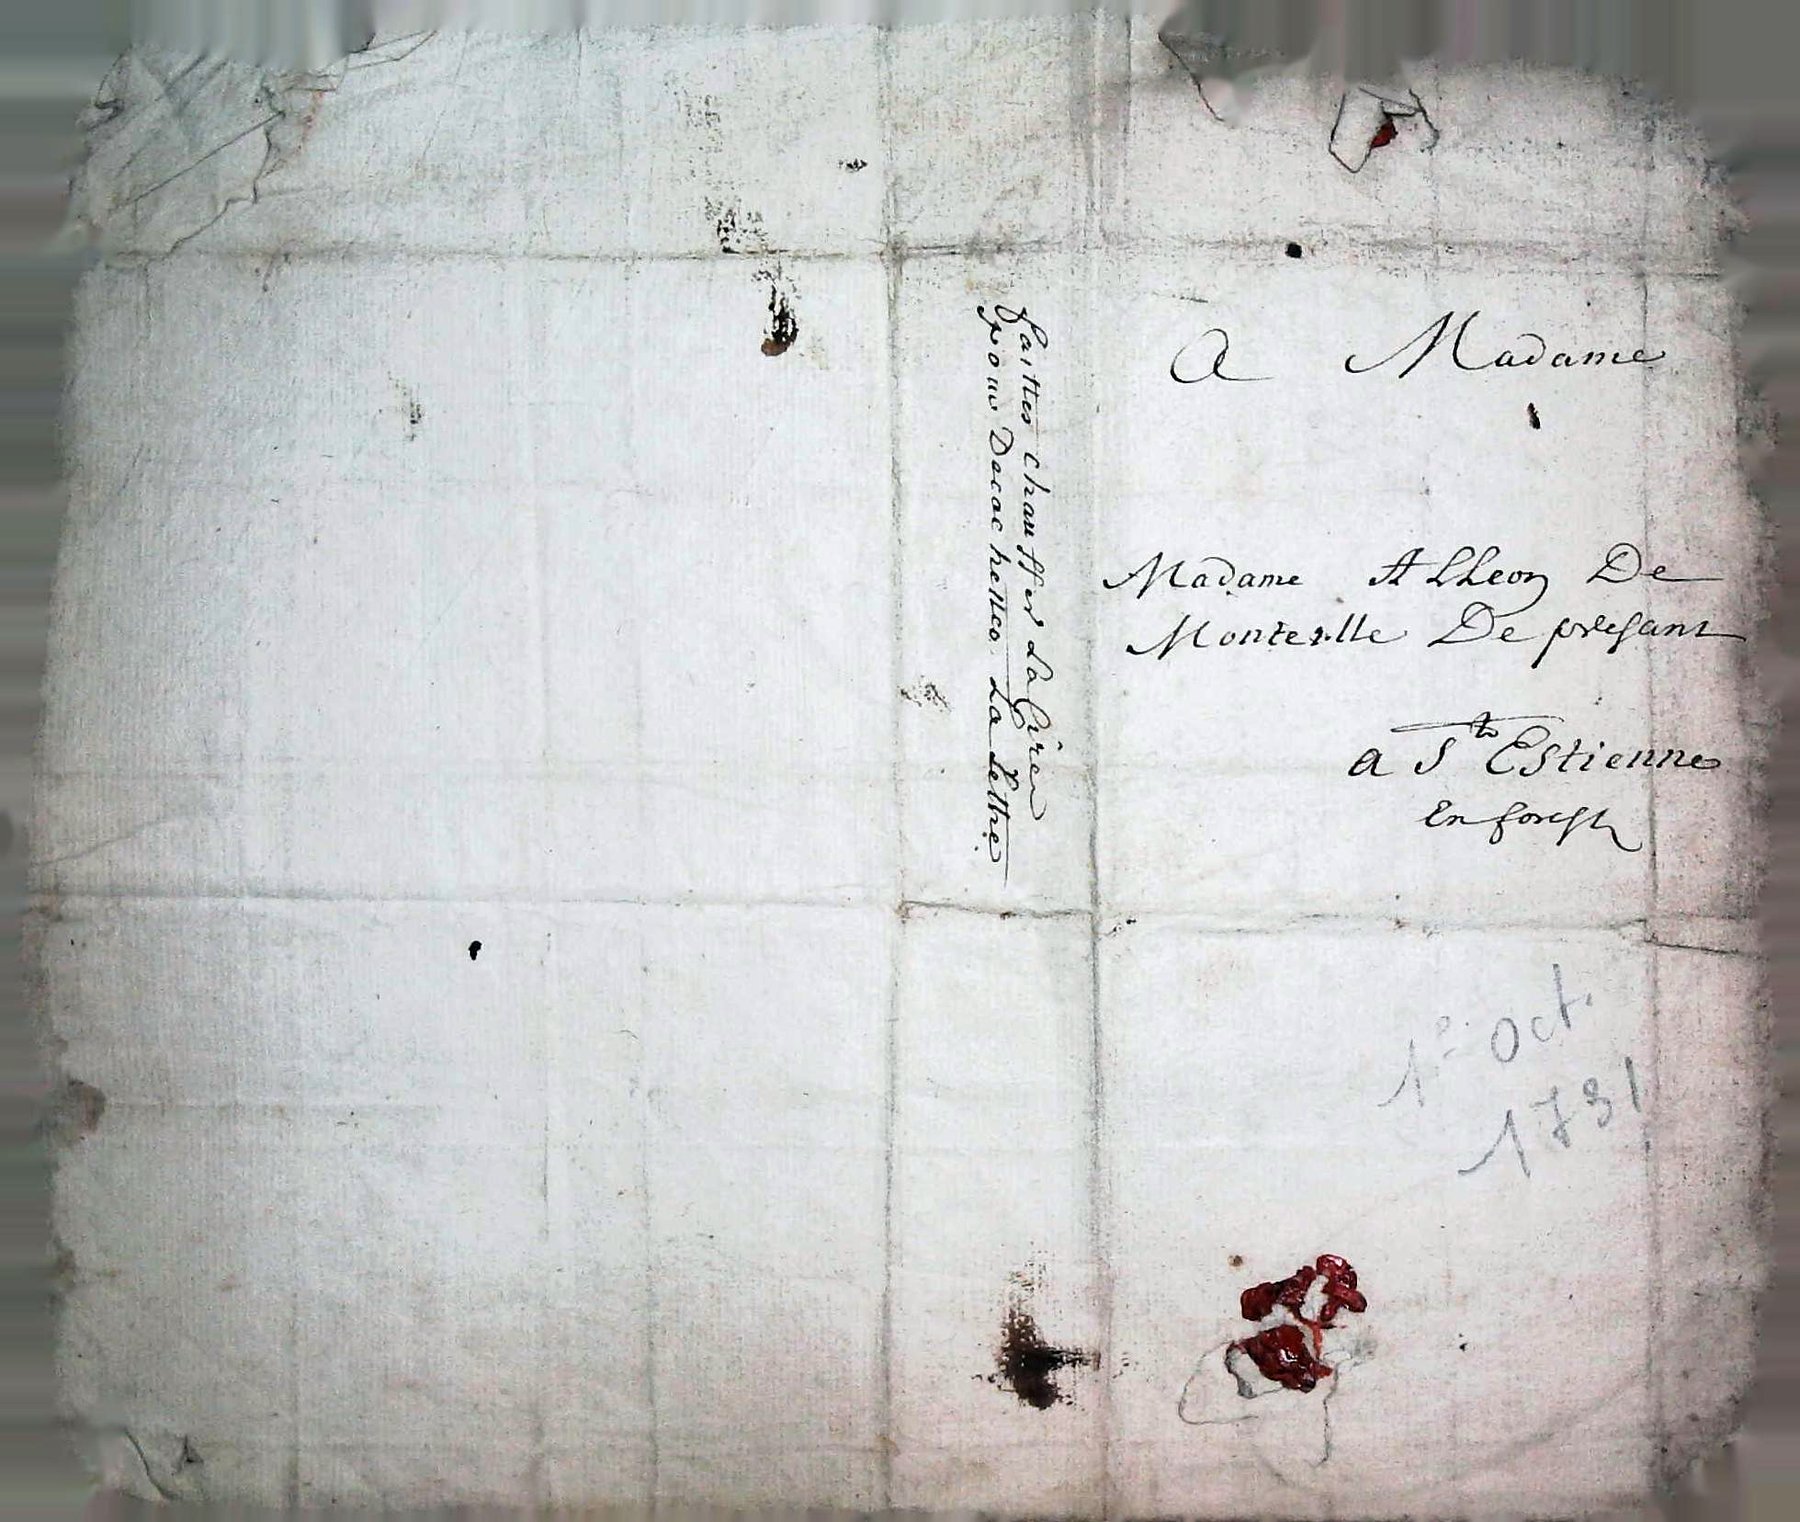 A Madame
Madame Alleon De
Monteille De presant
a St Estienne
En forest
faittes chauffer La Cire
pour Decachetter La Lettre
1e Oct.
1731